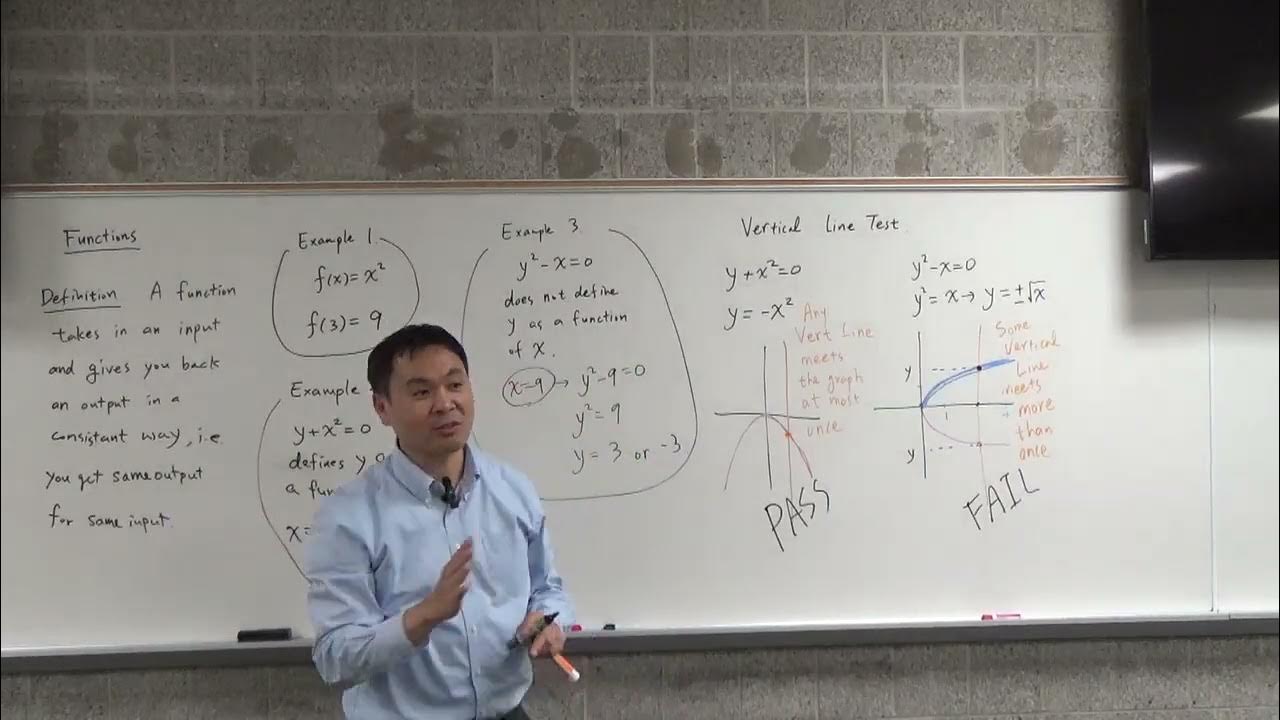 Functions
Definition A function
takes in an input
and gives you back
an output in a
consistant way, i.e
you get same output
for same input.
Example 1.
f(x) = x²
f(3) = 9
Example
y+x²=0
defines y
a
x=
Example 3.
y²-x=0
does not define
y as a function
of x.
x=9 → y²-9=0
y²=9
y = 3 or -3
Vertical Line Test.
y+x²=0
y = -x²
Any
Vert Line
meets
the graph
at most
once
PASS
y²-x=0
y²=x → y=±√x
Some
Vertical
Line
meets
more
than
once
y
1
y
FAIL